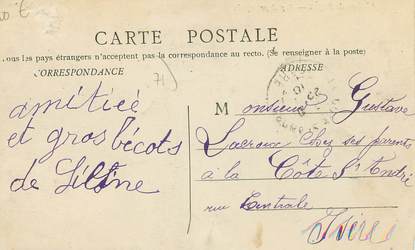 CARTE POSTALE
Tous les pays étrangers n'acceptent pas la correspondance au recto. (Se renseigner à la poste)
CORRESPONDANCE
ADRESSE
71
amitieé
et gros bécots
de
Monsieur Gustave
Lacroux Chez ses parents
à la Côte St André
rue Centrale
Isère